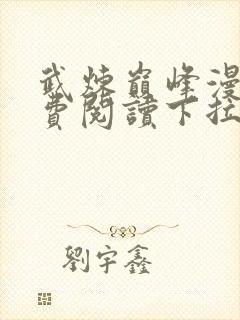 武煉巔峰漫
費閱讀下拉
劉宇鑫